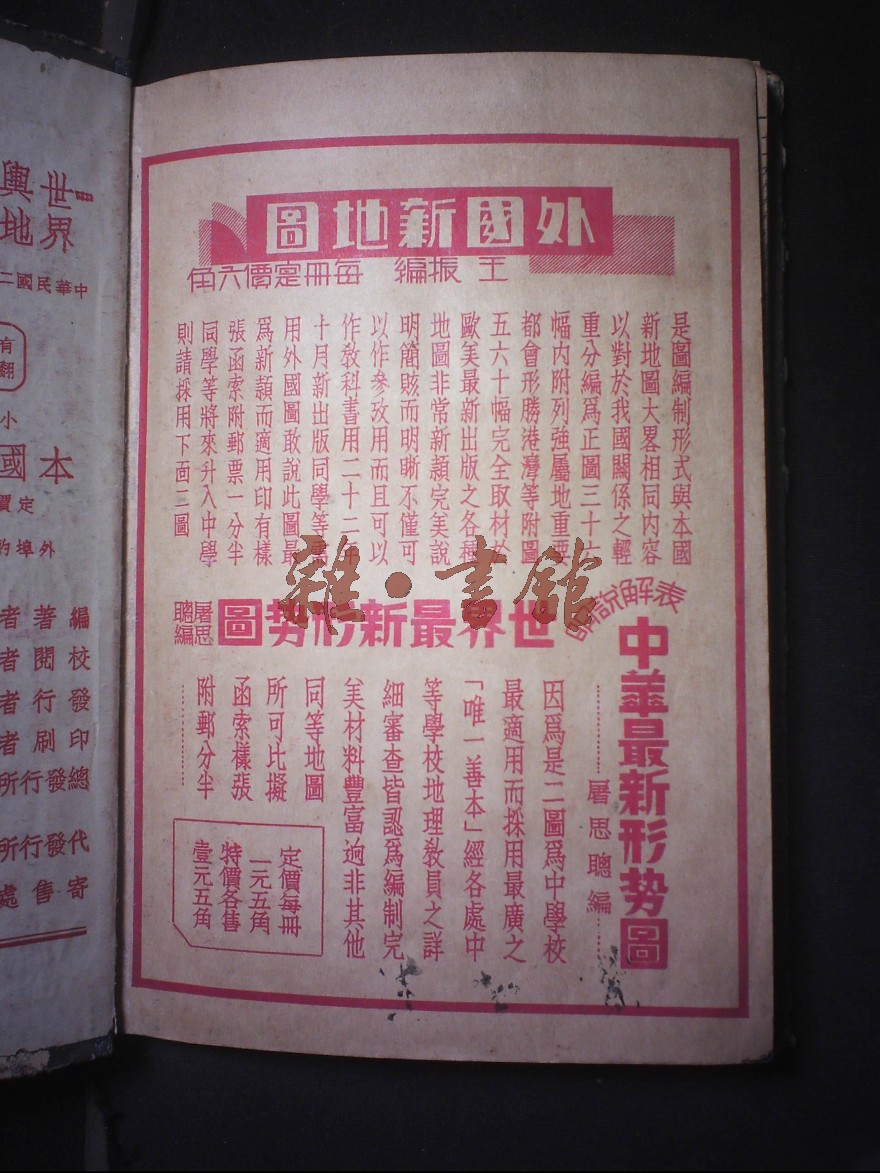 外國新地圖
王振編 每冊定價六角
是圖編制形式與本國
新地圖大畧相同內容
以對於我國關係之輕
重分編爲正圖三十
幅內附列强屬地重要
都會形勝港灣等附圖
五六十幅完全取材於
歐美最新出版之各種
地圖非常新穎完美說
明簡賅而明晰不僅可
以作參攷用而且可以
作敎科書用二十二年
十月新出版同學等需
用外國圖敢說此圖最
爲新穎而適用印有樣
張函索附郵票一分半
同學等將來升入中學
則請採用下面二圖
表解說明
中華最新形势圖
屠思聰編
世界最新形势圖
屠思聰編
因爲是二圖爲中學校
最適用而採用最廣之
「唯一善本」經各處中
等學校地理敎員之詳
細審查皆認爲編制完
美材料豐富逈非其他
同等地圖
所可比擬
函索樣張
附郵分半
定價每冊
一元五角
特價各售
壹元五角
雜·書館
世界
輿地
中華民國二
有
翻
小
本國
定價
外埠
編著者
校閱者
發行者
印刷者
總發行所
代發行所
寄售處